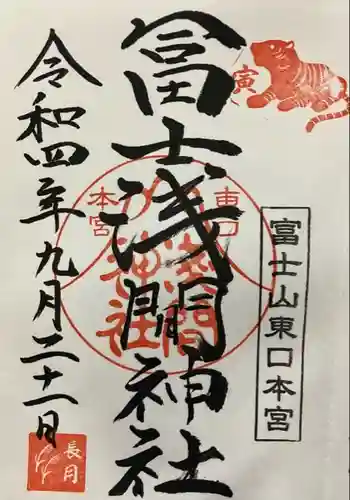 寅
富士山東口本宮
冨士浅間神社
東口
本宮
浅間
神社
令和四年九月二十一日
長月